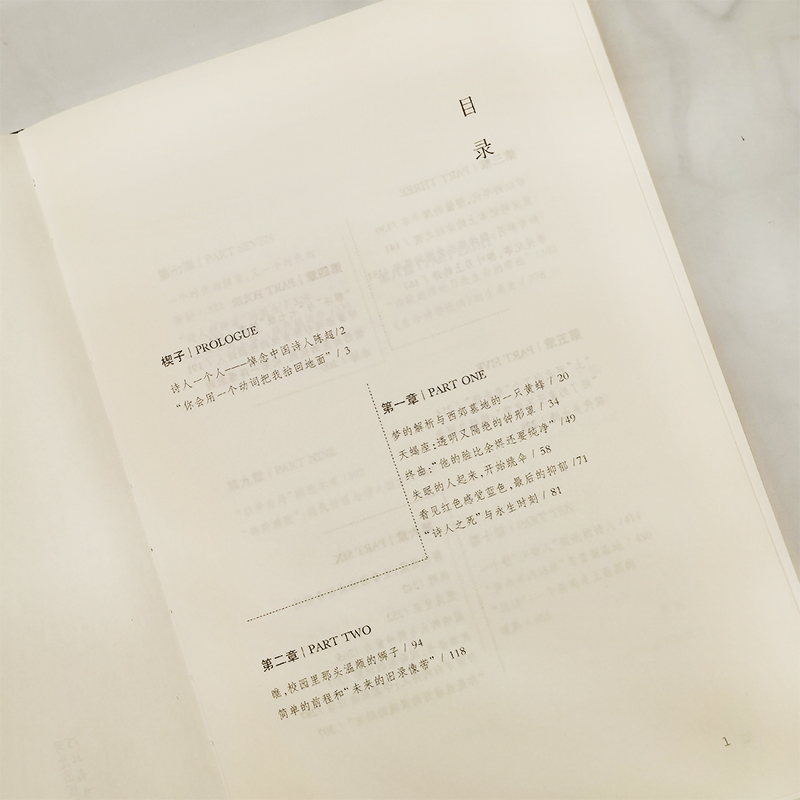 目
录
楔子 | PROLOGUE
诗人一个人——悼念中国诗人陈超/2
“你会用一个动词把我抬回地面” / 3
第一章 | PART ONE
梦的解析与西郊墓地的一只黄蜂 / 20
天蝎座:透明又隔绝的钟形罩 / 34
终曲:“他的脸比余烬还要纯净” /49
失眠的人起来,开始跳伞 / 58
看见红色感觉蓝色,最后的抑郁 /71
“诗人之死”与永生时刻 / 81
第二章 | PART TWO
瞧,校园里那头温顺的狮子 / 94
简单的前程和“未来的旧录像带” / 118
1